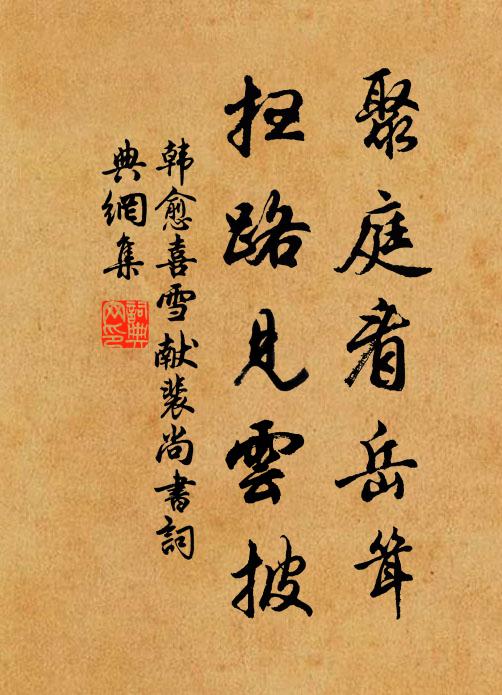 聚庭看岳耸
扫路见雲披
韩愈喜雪献裴尚書詞
典網集
詞典
网印